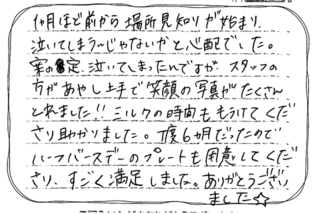 1ヶ月ほど前から場所見知りが始まり、
泣いてしまう〜じゃないかと心配でした。
案の定、泣いてしまったんですが、スタッフの
方があやし上手で笑顔の写真がたくさん
とれました!! ミルクの時間ももうけてくだ
さり助かりました。丁度6ヵ月だったので
ハーフバースデーのプレートも用意してくだ
さり、すごく満足しました。ありがとうござい
ました☆